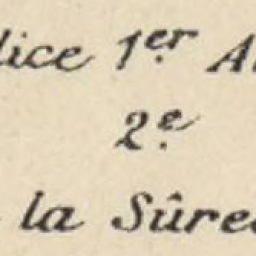 lice 1er A
2e
la Sûre